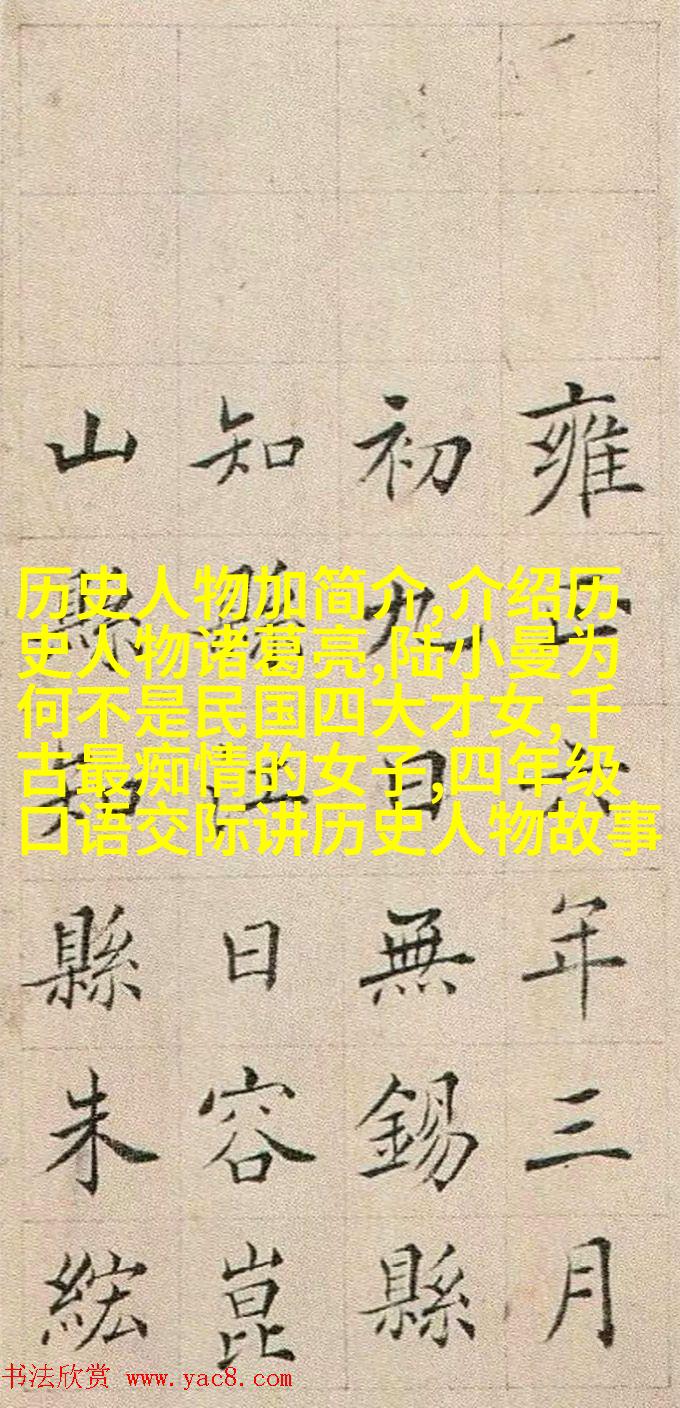 历史人物加简介,介绍历
史人物诸葛亮,陆小曼为
何不是民国四大才女,千
古最痴情的女子,四年级
口语交际讲历史人物故事
雍正六年三月
初九日無錫縣
知縣江日容崑
山縣知縣朱綋
书法欣赏 www.yac8.com